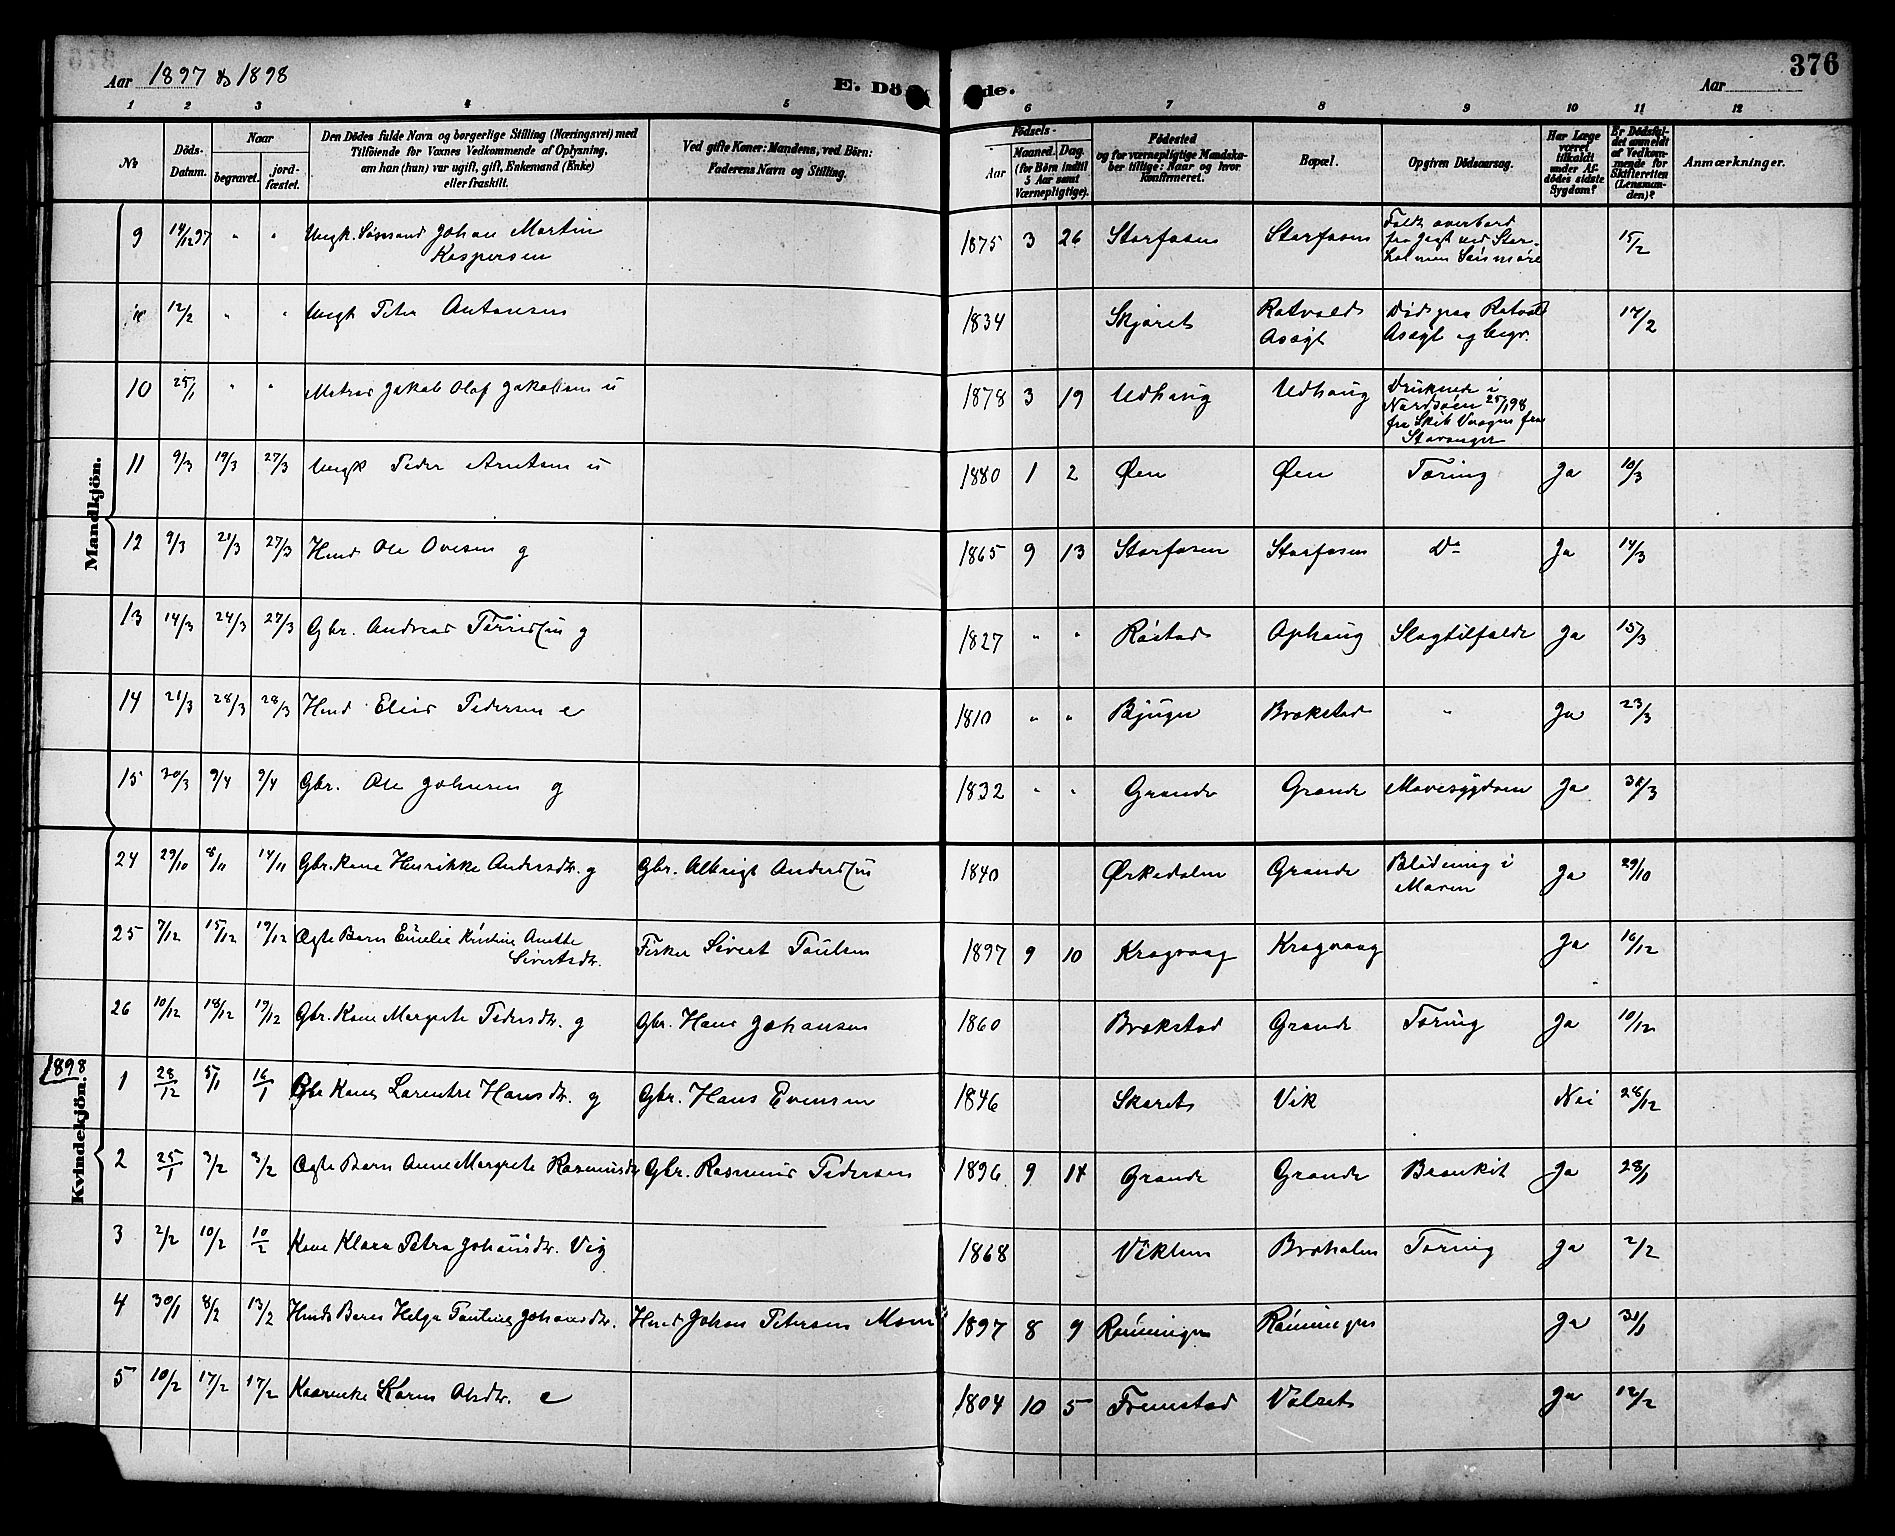 376
Aar 1897 & 1898
E. Døde.
Aar
1 2 3 4 5 6 7 8 9 10 11 12
No
Döds-Datum.
Naar
begravet.
jord-fæstet.
Den Dödes fulde Navn og borgerlige Stilling (Næringsvei) med
Tilföiende for Voxnes Vedkommende af Oplysning,
om han (hun) var ugift, gift, Enkemand (Enke)
eller fraskilt.
Ved gifte Koner: Mandens, ved Börn:
Faderens Navn og Stilling.
Födsels-
Aar
Maaned. Dag.
(for Börn indtil
5 Aar samt
Værnepligtige).
Födested
og for værnepligtige Mandska-
ber tillige: Naar og hvor
Konfirmeret.
Bopæl.
Opgiven Dödsaarsag.
Har Læge
været
tilkaldt
under Af-
dödes sidste
Sygdom?
Er Dödsfal-
det anmeldt
af Vedkom-
mende for
Skifteretten
(Lensman-
den)?
Anmærkninger.
Mandkjön.
9 19/12 97 " " Ungk. Sømand Johan Martin Kaspersen 1875 3 26 Storfosen Storfosen Faldt overbord fra Jagt ved Stor- 15/2
12/2 " " Ungk Peter Antonsen 1834 Skjøret Ratvolds Asægt Døds paa Ratvold Asægt og begr. 14/2
10 25/1 " " Matros Jakob Olaf Jakobsen u 1878 3 19 Udhaug Udhaug Druknede i Nordsøen 25/1 98 fra Skib fra Stavanger
11 9/3 19/3 27/3 Ungk Peder Arntsen u 1880 1 2 Øen Øen Tæring Ja 10/3
12 9/3 21/3 27/3 Huusmd Ole Ovesen g 1865 9 13 Storfosen Storfosen Do Ja 14/3
13 14/3 24/3 27/3 Gbr. Andreas g 1827 " " Røstad Ophaug Slagtilfælde Ja 15/3
14 21/3 28/3 28/3 Elias Pedersen e 1810 " " Bjugn Brækstad " Ja 23/3
15 30/3 9/4 9/4 Gbr. Ole Johnsen g 1832 " " Grande Grande Mavesygdom Ja 31/3
Kvindekjön.
24 29/10 8/11 14/11 Gbr.kone Henrikke Andersdtr. g Gbr. Albrigt Anderssen 1840 Ørkedalen Grande Blødning i Maven Ja 29/10
25 7/12 15/12 19/12 Ægte Barn Emelie Kristine Anette Sivertsdtr. Fisker Sivert Paulsen 1897 9 10 Kragvaag Kragvaag Ja 16/12
26 10/12 18/12 19/12 Gbr. Kone Margrete Pedersdtr. g Gbr. Hans Johansen 1860 Brækstad Grande Tæring Ja 10/12
1898
1 28/12 5/1 16/1 Gbr Kone Larentse Hansdtr. g Gbr. Hans Evensen 1846 Skaret Vik Nei 28/12
2 25/1 3/2 3/2 Ægte Barn Anne Margrete Rasmusdtr Gbr. Rasmus Pedersen 1896 9 14 Grande Grande Bronkit Ja 28/1
3 2/2 10/2 10/2 Kone Klara Petra Johansdtr. Vig 1868 Viklem Tæring Ja 2/2
4 30/1 8/2 13/2 Barn Helga Pauline Johansdtr. Johan Petersen 1897 8 9 Rønningen Rønningen Ja 31/1
5 10/2 17/2 17/2 Karen Olsdtr. e 1804 10 5 Fremstad Valset Ja 12/2